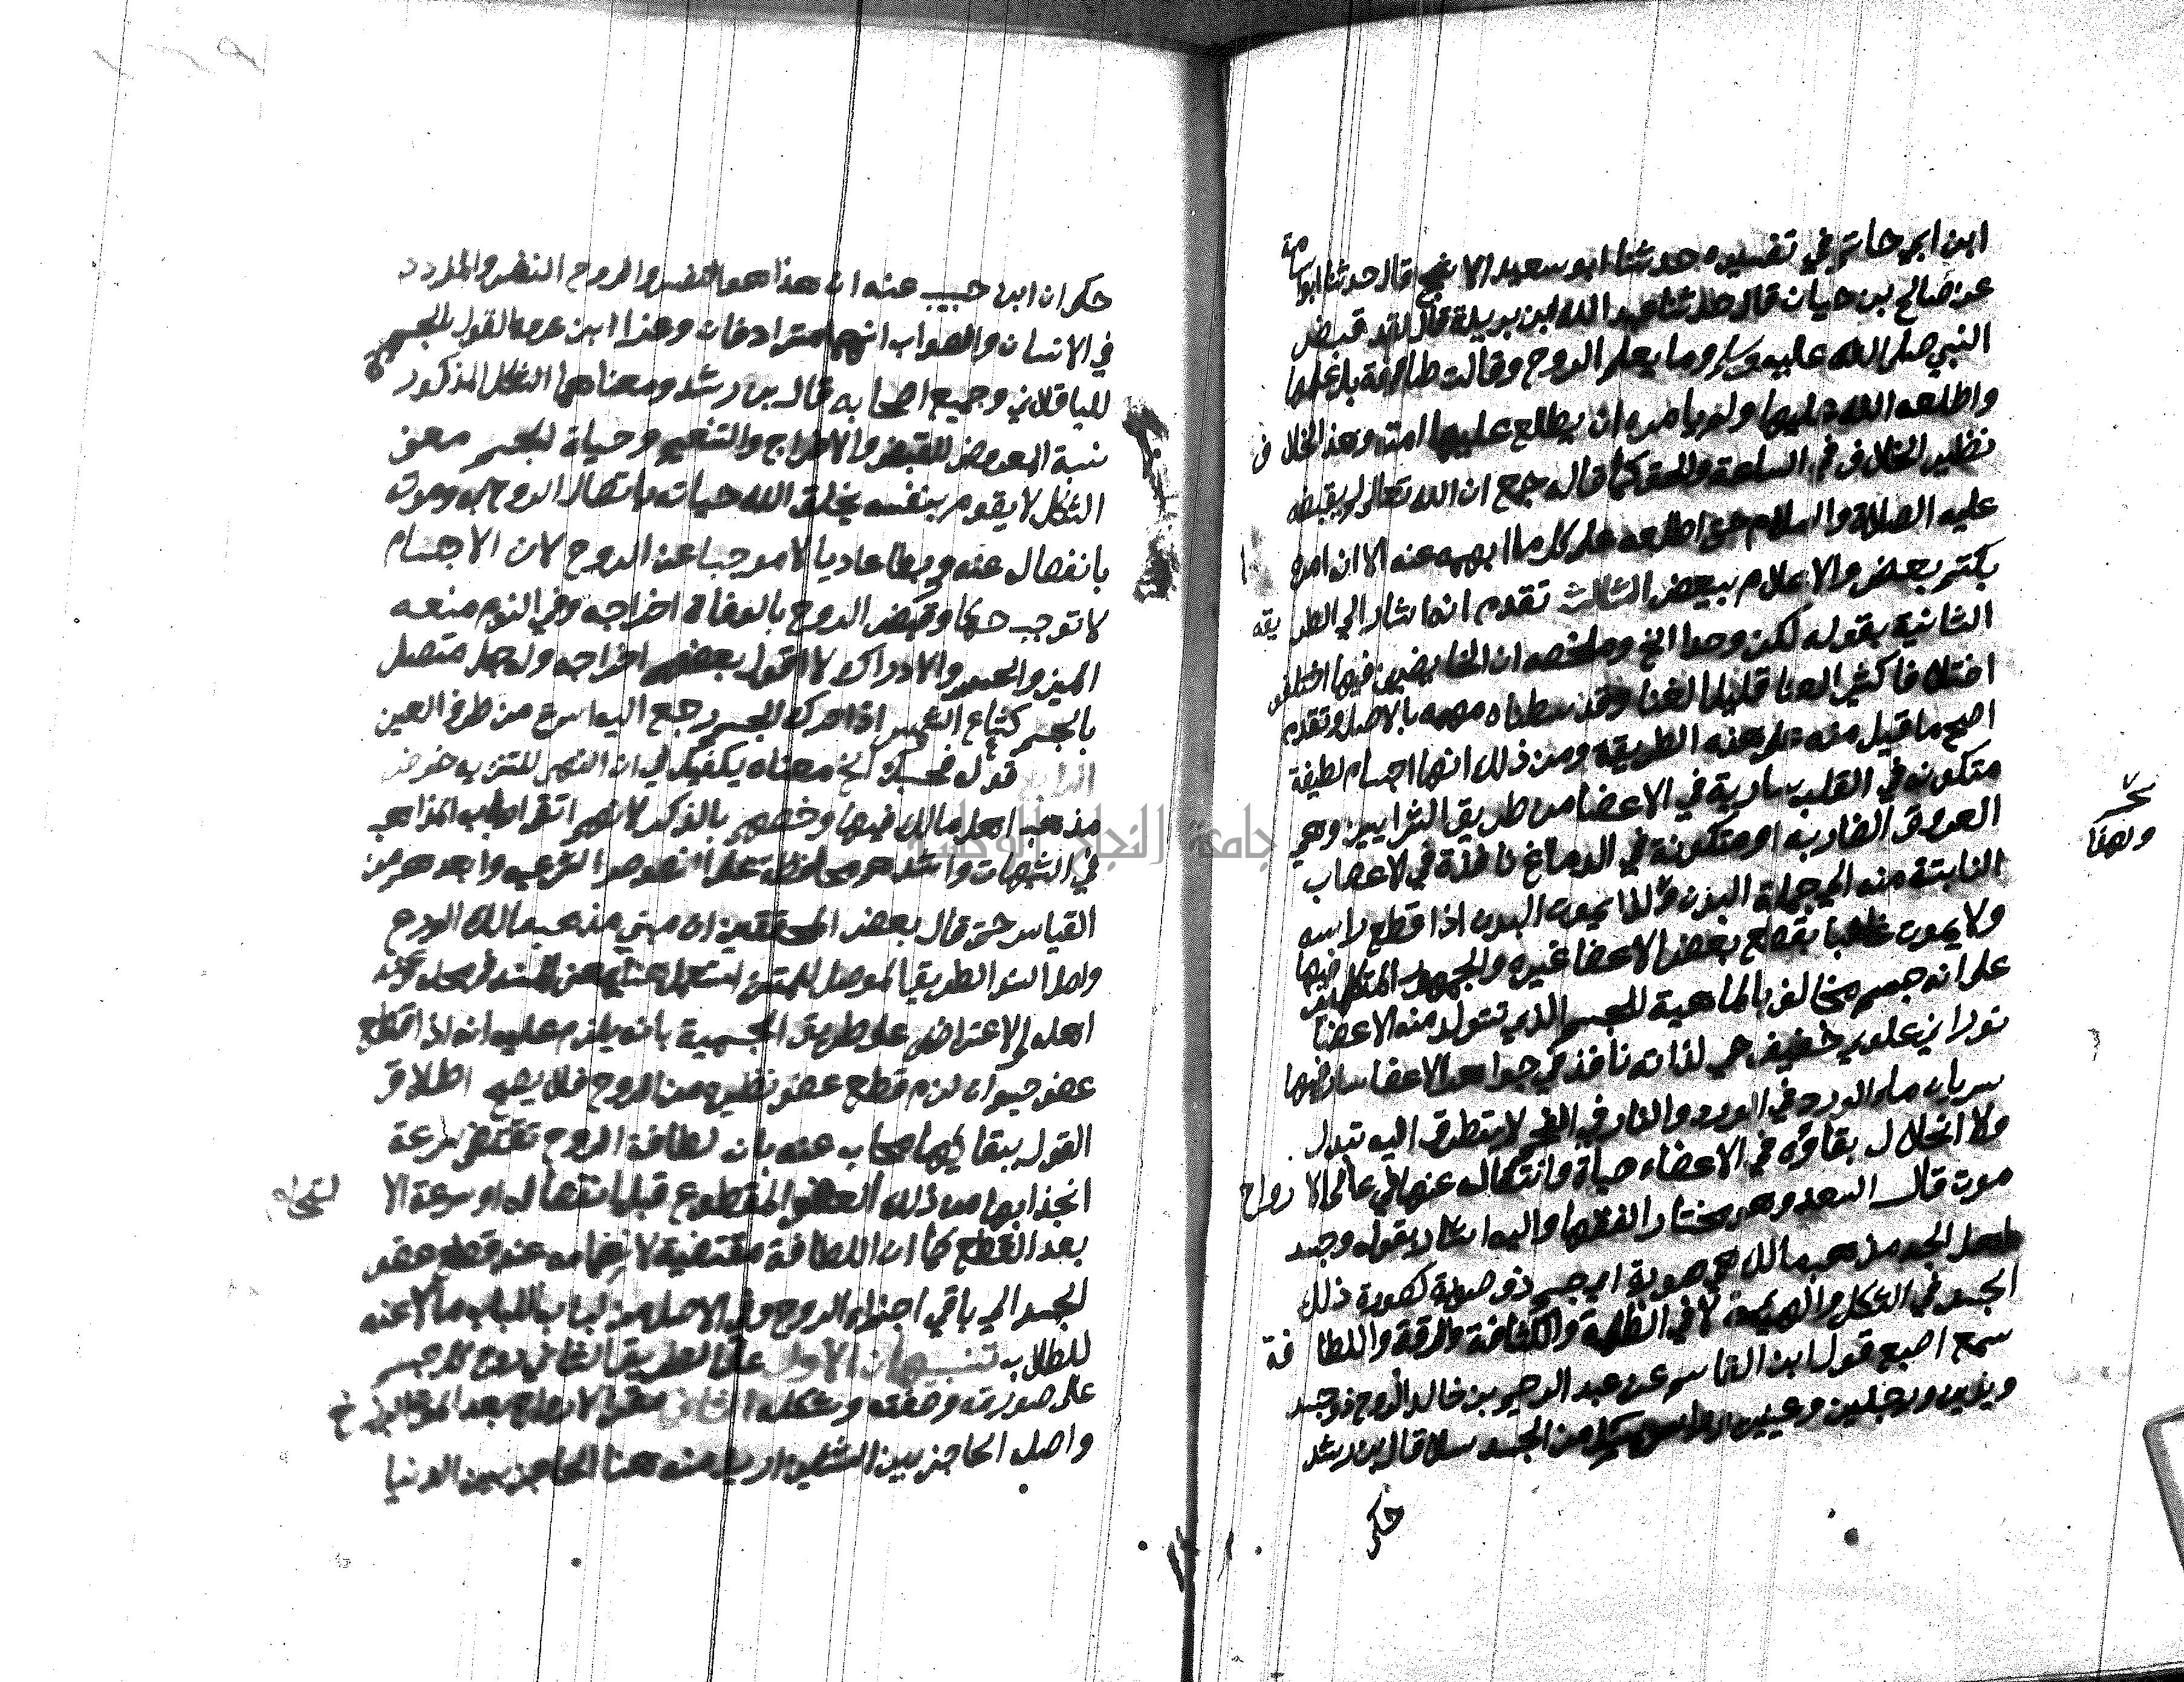 ابن ابي حاتم في تفسيره حدثنا ابو سعيد الاشج قال حدثنا ابو اسامة
عن صالح بن حيان قال حدثنا عبد الله بن بريدة قال لقد قبض
النبي صلى الله عليه وسلم وما يعلم الروح وقالت طائفة بل علمها
واطلعه الله عليها ولم يامره ان يطلع عليها امته وهذا الخلاف
نظير الخلاف في الساعة والحق كما قال جمع ان الله تعالى لم يقبضه
عليه الصلاة والسلام حتى اطلعه على كل ما ابهمه عنه الا انه امره
بكتم بعض والاعلام ببعض الثالث تقدم انه اشار الى الطريقة
الثانية بقوله لكن وجدا الخ وملخصه ان الخايضين فيها اختلفوا
اختلافا كثير العنا قليل الغنا وقد بسطناه مهمه بالاصل وتقدم
اصح ما قيل منه على هذه الطريقة ومن ذلك انها اجسام لطيفة
متكونه في القلب سارية في الاعضا من طريق الشرايين وهي
العروق الضاربه او متكونة في الدماغ نافذة في الاعصاب
النابتة منه الى جملة البدن ولذا يموت البدن اذا قطع راسه
ولا يموت غالبا بقطع بعض الاعضا غيره والجمهور المتكلمين فيها
على انه جسم مخالف بالماهية للجسم الذي تتولد منه الاعضا
نوراني علوي خفيف حي لذاته نافذ في جواهر الاعضا سار فيها
سريان ماء الورد في الورد والنار في الفحم لا يتطرق اليه تبدل
ولا انحلال بقاؤه في الاعضاء حياة وانتقاله عنها الى عالم الارواح
موت قال السعد وهو مختار الفقها واليه اشار بقوله وجد
لمعل الجد مذهب مالك هي صورة اي جسم ذو صورة كصورة ذلك
الجسد في الشكل والهيئة لا في الظلمة والكثافة والرقة واللطافة
سمع اصبغ قول ابن القاسم عن عبد الرحيم بن خالد الروح ذو جسد
ويدين ورجلين وعينين وراس من الجسد سلا قال بن رشد
حكى
نحر
ولهذا
حكى ان ابن حبيب عنه ان هذا هو النفس والروح النفس والمتردد
في الانسان والصواب انهما مترادفان وعزا ابن عرفة القول بالجسم
للباقلاني وجميع اصحابه قال بن رشد ومعناهما الشكل المذكور
نسبة المعروض للقبض والاخراج والتنعيم وحياة الجسم معنى
الشكل لا يقوم بنفسه يخلق الله حياته باتصال الروح به وموته
بانفصاله عنه ربطا عاديا لا موجبا عن الروح لان الاجسام
لا توجب حكما وقبض الروح بالوفاة اخراجه وفي النوم منعه
الميز والحس والادراك لا قول بعضهم اخراجه وله حبل متصل
بالجسم كشعاع الشمس اذا حرك الجسم رجع اليه اسرع من طرف العين
الرابع قوله فحسبك الخ معناه يكفيك في ان النهي للتنزيه خوض
مذهب اهل مالك فيها وخصهم بالذكر لانهم اتقى ارباب المذاهب
في الشبهات واشدهم محافظة على النصوص الشرعيه وابعدهم عن
القياس حتى قال بعض المحققين ان مبنى مذهب مالك الورع
واما السند الطريق الموصل للمتن
اهله الاعتراض على طريق الجسمية بانه يلزم عليه انه اذا قطع
عضو حيوان لزم قطع عضو نظيره من الروح فلا يصح اطلاق
القول ببقائها مجاب عنه بان لطافة الروح تقتضي سرعة
انجذابها من ذلك العضو المقطوع قبل انفصاله او سرعة الا لتحامه
بعد القطع كما ان اللطافة مقتضية لانضمامه عند قطع عضو
الجسد الى باقي اجزاء الروح وفي الاصل من لباب اللباب ما لا عنه
للطالب تنبيهان الاول على الطريق الثاني روح كل جسم
على صورته وصفته وشكله الثاني مقر الارواح بعد الموت البرزخ
واصله الحاجز بين الشيئين اريد منه هنا الحاجز بين الدنيا
جامعة النجاح الوطنية